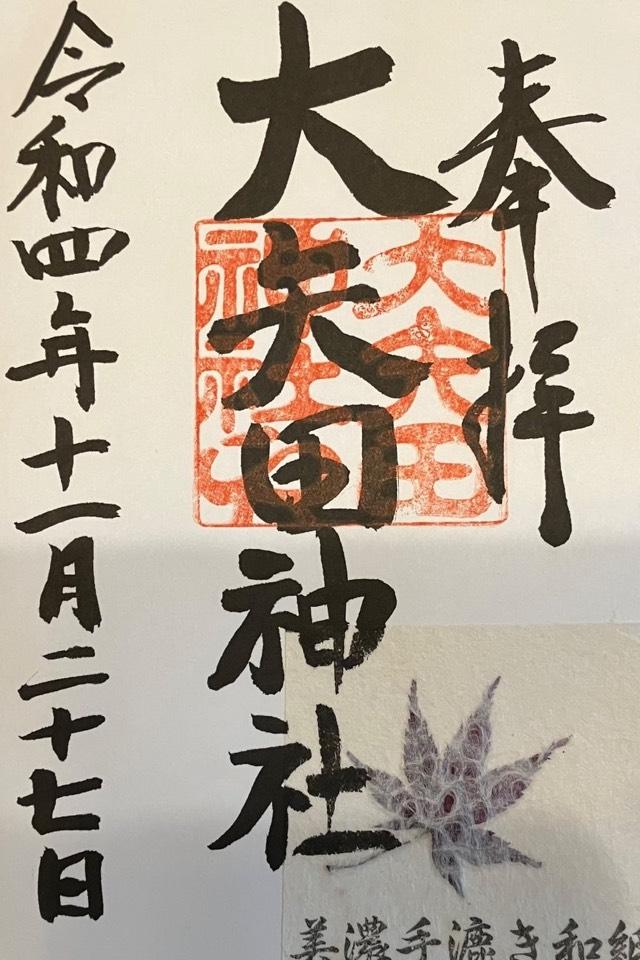 奉拝
大矢田神社
大矢田
神社
令和四年十一月二十七日
美濃手漉き和紙